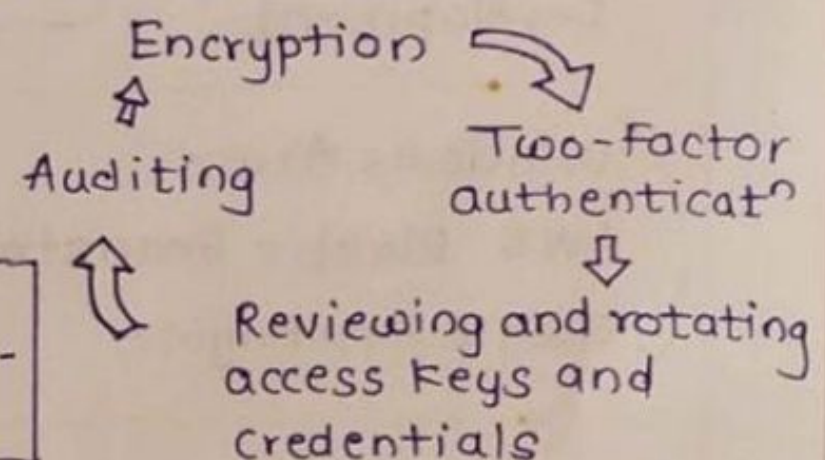 Encryption
Two-factor
authenticatn
Auditing
Reviewing and rotating
access keys and
credentials